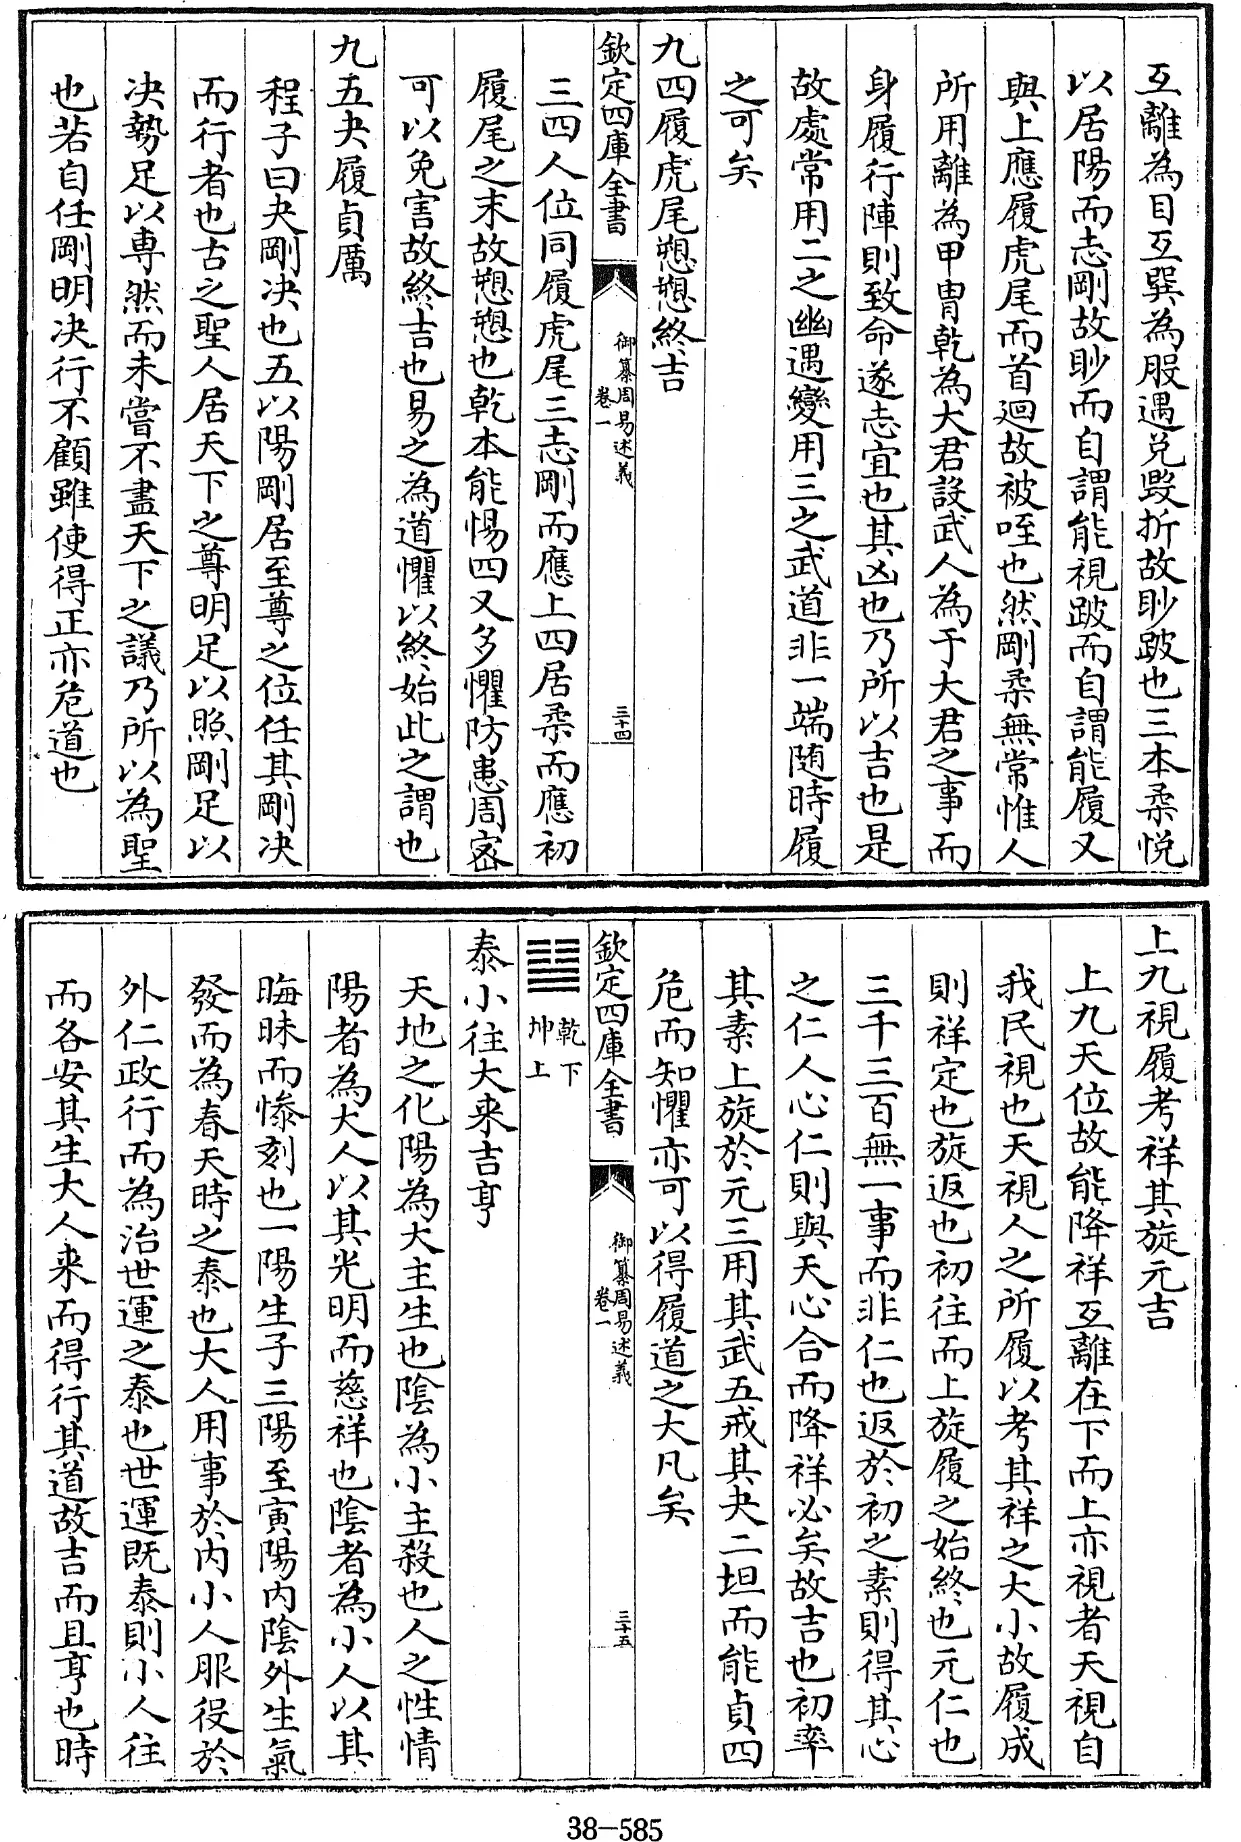 互離為目互巽為股遇兑毁折故眇跛也三本柔悦
以居陽而志剛故眇而自謂能視跛而自謂能履又
與上應履虎尾而首迴故被咥也然剛柔無常惟人
所用離為甲胄乾為大君設武人為于大君之事而
身履行陣則致命遂志宜也其凶也乃所以吉也是
故處常用二之幽遇變用三之武道非一端随時履
之可矣
九四履虎尾愬愬終吉
欽定四庫全書
御纂周易述義
卷一
三十四
三四人位同履虎尾三志剛而應上四居柔而應初
履尾之末故愬愬也乾本能惕四又多懼防患周宻
可以免害故終吉也易之為道懼以終始此之謂也
九五夬履貞厲
程子曰夬剛决也五以陽剛居至尊之位任其剛决
而行者也古之聖人居天下之尊明足以照剛足以
决勢足以専然而未嘗不盡天下之議乃所以為聖
也若自任剛明决行不顧雖使得正亦危道也
上九視履考祥其旋元吉
上九天位故能降祥互離在下而上亦視者天視自
我民視也天視人之所履以考其祥之大小故履成
則祥定也旋返也初往而上旋履之始終也元仁也
三千三百無一事而非仁也返於初之素則得其心
之仁人心仁則與天心合而降祥必矣故吉也初率
其素上旋於元三用其武五戒其夬二坦而能貞四
危而知懼亦可以得履道之大凡矣
欽定四庫全書
御纂周易述義
卷一
三十五
䷊
乾下
坤上
泰小往大来吉亨
天地之化陽為大主生也陰為小主殺也人之性情
陽者為大人以其光明而慈祥也陰者為小人以其
晦昧而慘刻也一陽生子三陽至寅陽内陰外生氣
發而為春天時之泰也大人用事於内小人服役於
外仁政行而為治世運之泰也世運既泰則小人往
而各安其生大人来而得行其道故吉而且亨也時
38-585